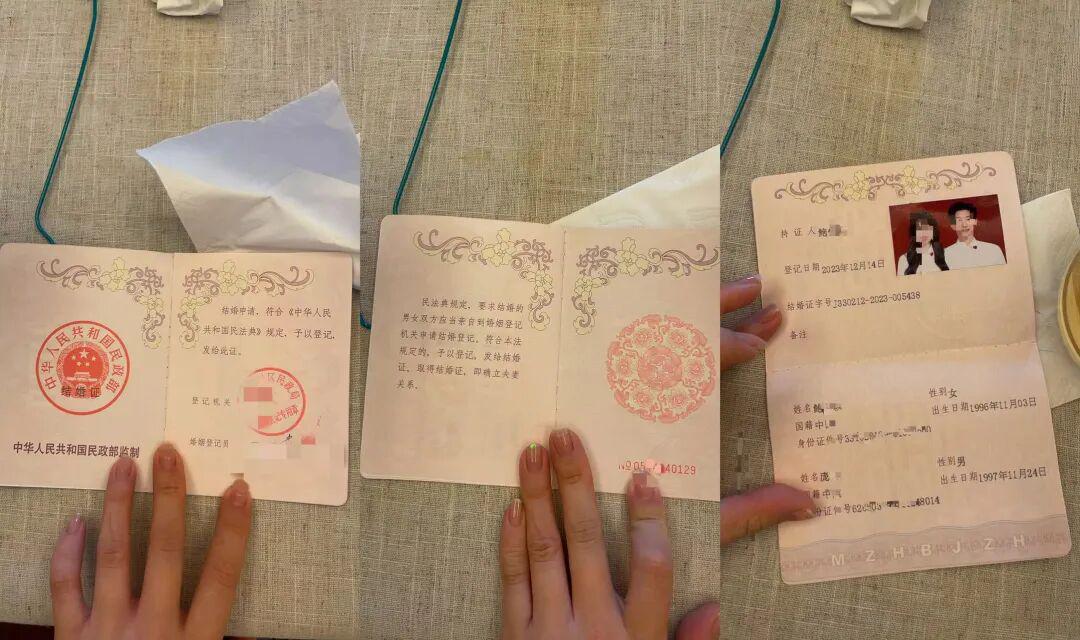 中华人民共和国民政部
结婚证
中华人民共和国民政部监制
结婚申请，符合《中华人民
共和国民法典》规定，予以登记，
发给此证。
登记机关
区民政局
婚姻登记员
民法典规定，要求结婚的
男女双方应当亲自到婚姻登记
机关申请结婚登记。符合本法
规定的，予以登记，发给结婚
证，取得结婚证，即确立夫妻
关系。
持证人 鲍
登记日期 2023年12月14日
结婚证字号 J330212-2023-005438
备注
姓名 鲍 性别 女
国籍 中 出生日期 1996年11月03日
身份证件号
姓名 庞 性别 男
国籍 中 出生日期 1997年11月24日
份证件号
MZHBJZH